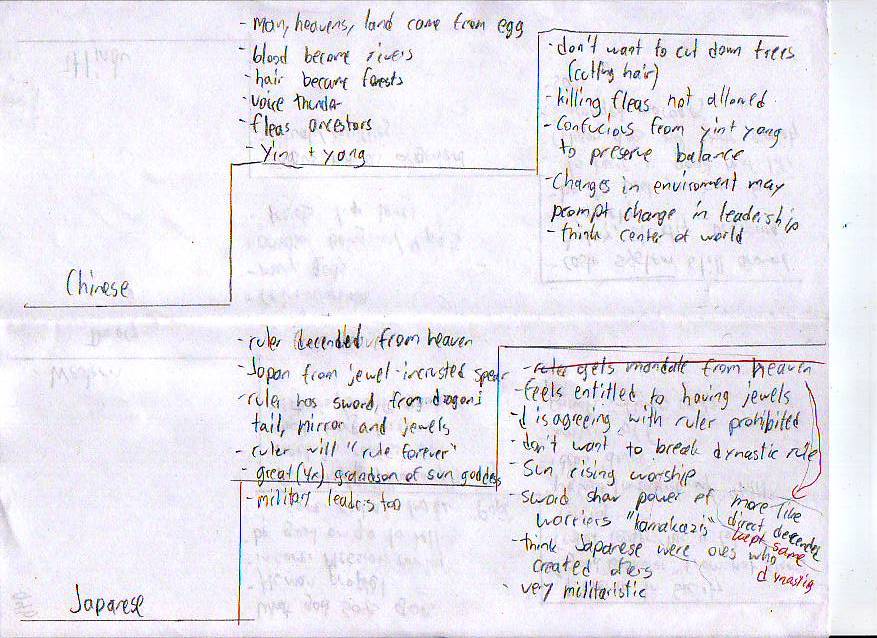 - Man, heavens, land come from egg
- blood become rivers
- hair became forests
- voice thunder
- fleas ancestors
- yin + yang
- don't want to cut down trees
(cutting hair)
- killing fleas not allowed
- Confucious from yin + yang
to preserve balance
- Changes in enviroment may
prompt change in leadership
- think center of world
Chinese
- ruler decended from heaven
- Japan from jewel-incrusted spear
- ruler has sword, from dragon's
tail, mirror and jewels
- ruler will "rule forever"
- great (4x) grandson of sun goddess
- military leaders too
- ruler gets mandate from heaven
- feels entitled to having jewels
- disagreeing with ruler prohibited
- don't want to break dynastic rule
- Sun rising worship
- sword show power of
worriers "kamakazis"
- think Japanese were ones who
created others
- very militaristic
more like
direct decended
kept same
dynasty
Japanese